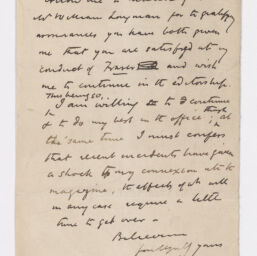 Mr William Longman for the gratifying
assurances you have both given
me that you are satisfied at my
conduct of Fraser and wish
me to continue in the editorship.
This being so,
I am willing to continue
& to do my best in the office; though at
the same time I must confess
that recent incidents have given
a shock to my connexion with the
magazine, the effects of wh will
in any case require a little
time to get over.
Believe me
yours